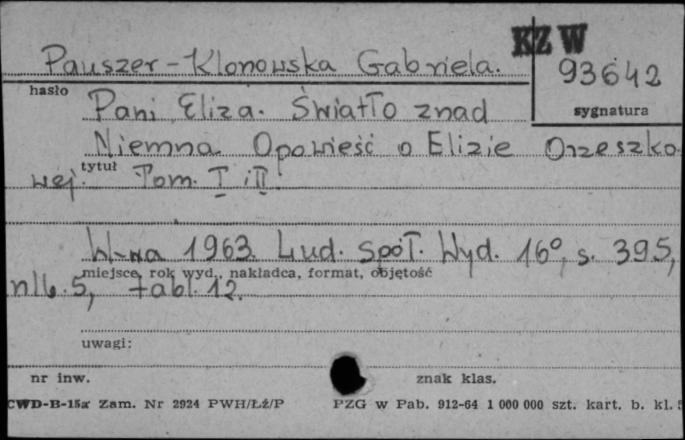 KZW
Pauszer-Klonowska Gabriela.
93642
hasło
sygnatura
Pani Eliza. Światło znad
Niemna Opowieść o Elizie Orzeszko
tytuł
wej. Tom. I i II.
W-wa 1963. Lud. Spół. Wyd. 16°, s. 395,
miejsce, rok wyd., nakładca, format, objętość
nlb. 5, tabl. 12.
uwagi:
nr inw.
znak klas.
CWD-B-15a Zam. Nr 2924 PWH/Łż/P PZG w Pab. 912-64 1 000 000 szt. kart. b. kl.